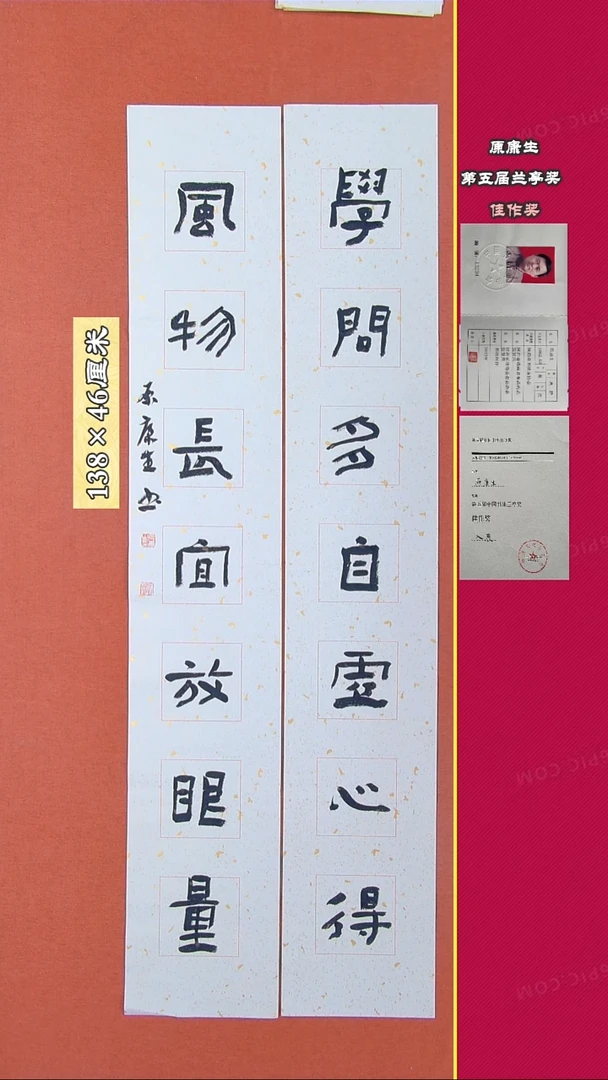 學問多自虛心得
風物長宜放眼量
原康生书
138×46厘米
原康生
第五届兰亭奖
佳作奖